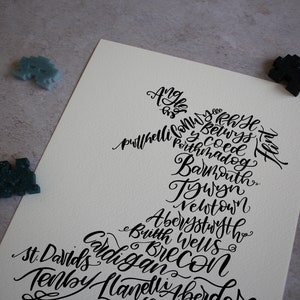 Angle
sey
Conwy Rhyl
Flint
Betws y
Coed
Pwllheli
Porthmadog
Barmouth
Tywyn
Newtown
Aberystwyth
Builth Wells
Cardigan
Brecon
St. Davids
Tenby Llanelli